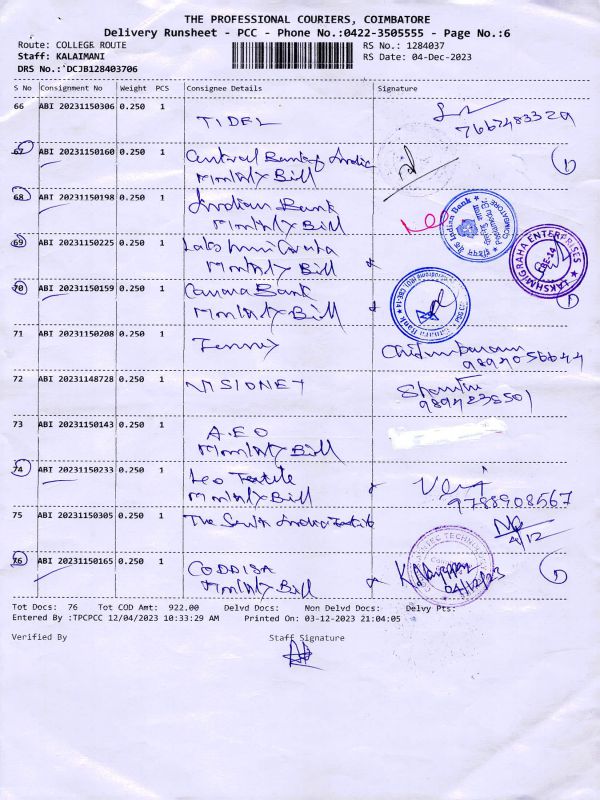 THE PROFESSIONAL COURIERS, COIMBATORE
Delivery Runsheet - PCC - Phone No.:0422-3505555 - Page No.:6
Route: COLLEGE ROUTE RS No.: 1284037
Staff: KALAIMANI RS Date: 04-Dec-2023
DRS No.: DCJB128403706
S No Consignment No Weight PCS Consignee Details Signature
66 ABI 20231150306 0.250 1 TIDEL 7667483329
67 ABI 20231150160 0.250 1 Central Bank of India
Monthly Bill
68 ABI 20231150198 0.250 1 Indian Bank
Monthly Bill
69 ABI 20231150225 0.250 1
Monthly Bill
LAKSHMIGRAHA ENTERPRISES
CBE-14
70 ABI 20231150159 0.250 1 Canara Bank
Monthly Bill
71 ABI 20231150208 0.250 1 Jenney
72 ABI 20231148728 0.250 1 VISIONET
73 ABI 20231150143 0.250 1 A.E.O
Monthly Bill
74 ABI 20231150233 0.250 1 Leo Textile
Monthly Bill 9788908567
75 ABI 20231150305 0.250 1 The South India Textile
4/12
76 ABI 20231150165 0.250 1 CODDISA
Monthly Bill 04/12/23
Tot Docs: 76 Tot COD Amt: 922.00 Delvd Docs: Non Delvd Docs: Delvy Pts:
Entered By :TPCPCC 12/04/2023 10:33:29 AM Printed On: 03-12-2023 21:04:05
Verified By Staff Signature